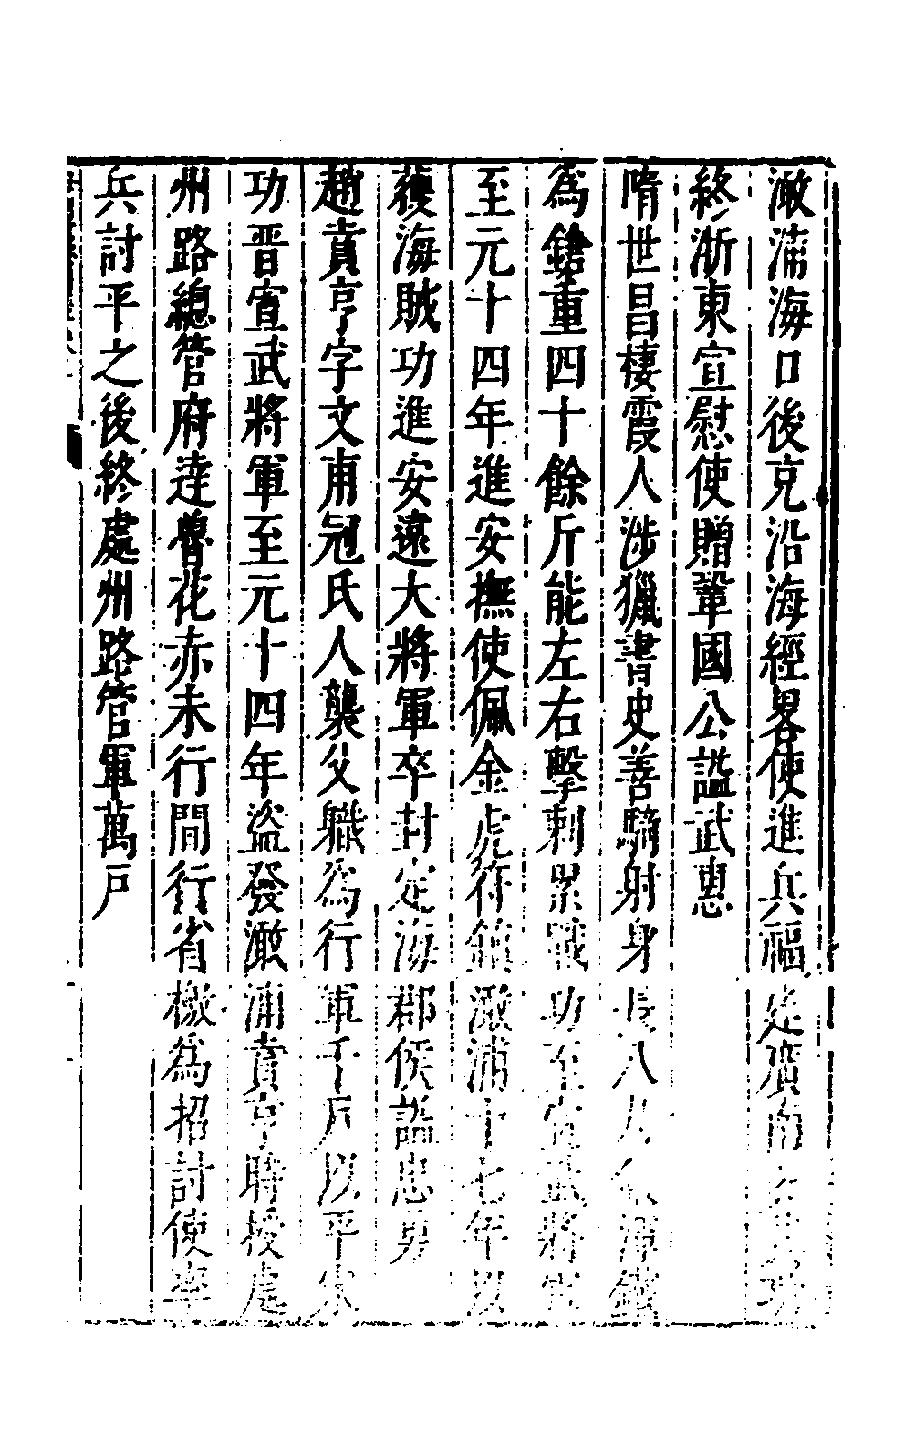 澉浦海口後克沿海經畧使進兵福建廣南
終浙東宣慰使贈鞏國公諡武惠
隋世昌棲霞人涉獵書史善騎射身長八尺 渾鐵
為鎗重四十餘斤能左右擊刺累戰功至宣武將軍
至元十四年進安撫使佩金虎符鎮澉浦十七年以
獲海賊功進安遠大將軍卒封定海郡侯諡忠勇
趙賁亨字文甫冠氏人襲父職為行軍千戶以平宋
功晋宣武將軍至元十四年盜發澉浦賁亨時授處
州路總管府逹魯花赤未行間行省檄為招討使率
兵討平之後終處州路管軍萬戶